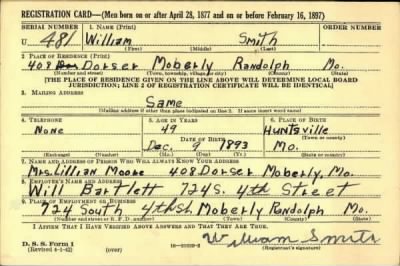 REGISTRATION CARD—(Men born on or after April 28, 1877 and on or before February 16, 1897)
SERIAL NUMBER 1. NAME (Print) ORDER NUMBER
U 481 William Smith
(First) (Middle) (Last)
2. PLACE OF RESIDENCE (Print)
408 Dorser Moberly Randolph Mo.
(Number and street) (Town, township, village, or city) (County) (State)
[THE PLACE OF RESIDENCE GIVEN ON THE LINE ABOVE WILL DETERMINE LOCAL BOARD
JURISDICTION; LINE 2 OF REGISTRATION CERTIFICATE WILL BE IDENTICAL]
3. MAILING ADDRESS
Same
[Mailing address if other than place indicated on line 2. If same insert word same]
4. TELEPHONE 5. AGE IN YEARS 6. PLACE OF BIRTH
None 49 Huntsville
DATE OF BIRTH (Town or county)
Dec. 9 1893 Mo.
(Exchange) (Number) (Mo.) (Day) (Yr.) (State or country)
7. NAME AND ADDRESS OF PERSON WHO WILL ALWAYS KNOW YOUR ADDRESS
Mrs. Lillian Moore 408 Dorser Moberly, Mo.
8. EMPLOYER'S NAME AND ADDRESS
Will Bartlett 724 S. 4th Street
9. PLACE OF EMPLOYMENT OR BUSINESS
724 South 4th St. Moberly Randolph Mo.
(Number and street or R. F. D. number) (Town) (County) (State)
I AFFIRM THAT I HAVE VERIFIED ABOVE ANSWERS AND THAT THEY ARE TRUE.
D. S. S. Form 1
(Revised 4-1-42) (over) William Smith
(Registrant's signature)